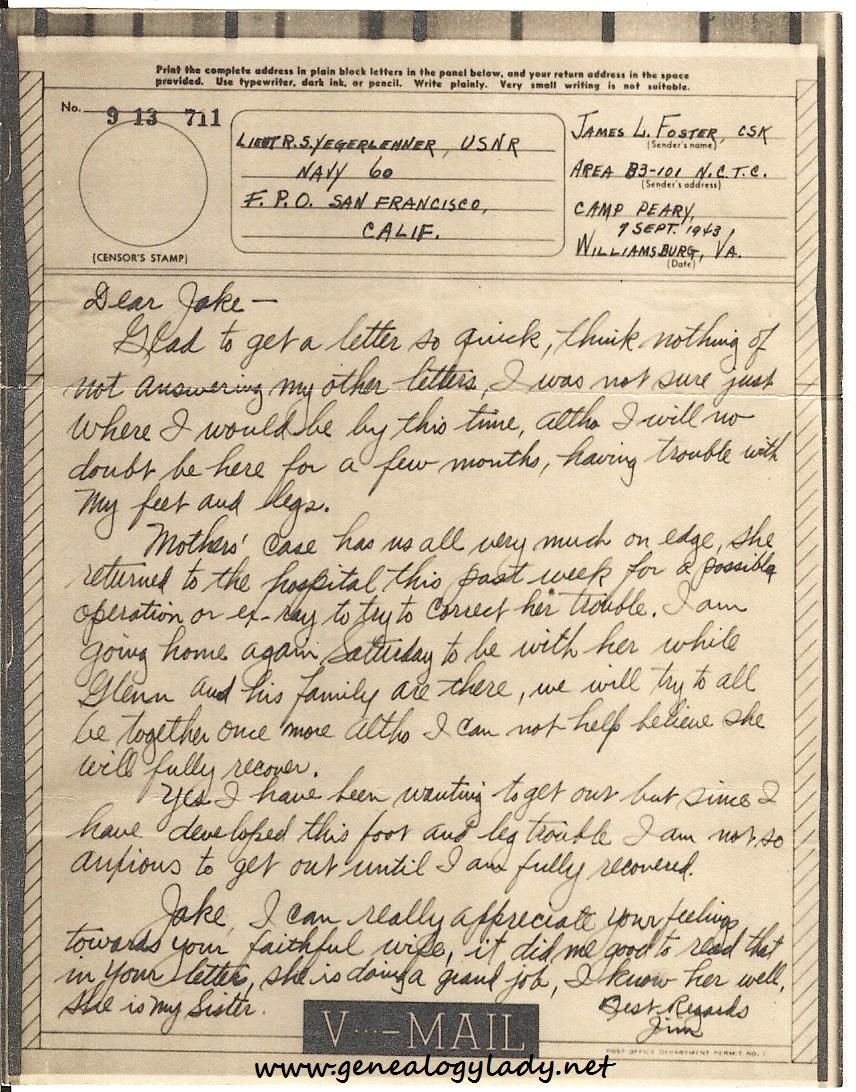 Print the complete address in plain block letters in the panel below, and your return address in the space
provided. Use typewriter, dark ink, or pencil. Write plainly. Very small writing is not suitable.
No.
9 13 711
(CENSOR'S STAMP)
LIEUT R. S. YEGERLEHNER, USNR
NAVY 60
F. P. O. SAN FRANCISCO,
CALIF.
JAMES L. FOSTER, CSK
(Sender's name)
AREA B3-101 N.C.T.C.
(Sender's address)
CAMP PEARY,
7 SEPT. 1943
WILLIAMSBURG, VA.
(Date)
Dear Jake —
Glad to get a letter so quick, think nothing of
not answering my other letters, I was not sure just
where I would be by this time, altho I will no
doubt be here for a few months, having trouble with
my feet and legs.
Mothers' case has us all very much on edge, she
returned to the hospital this past week for a possible
operation or ex-ray to try to correct her trouble. I am
going home again Saturday to be with her while
Glenn and his family are there, we will try to all
be together once more altho I can not help believe she
will fully recover.
Yes I have been wanting to get out but since I
have developed this foot and leg trouble I am not so
anxious to get out until I am fully recovered.
Jake, I can really appreciate your feelings
towards your faithful wife, it did me good to read that
in your letter, she is doing a grand job, I know her well,
she is my Sister.
Best Regards
Jim
V···—MAIL
POST OFFICE DEPARTMENT PERMIT NO. 1
www.genealogylady.net